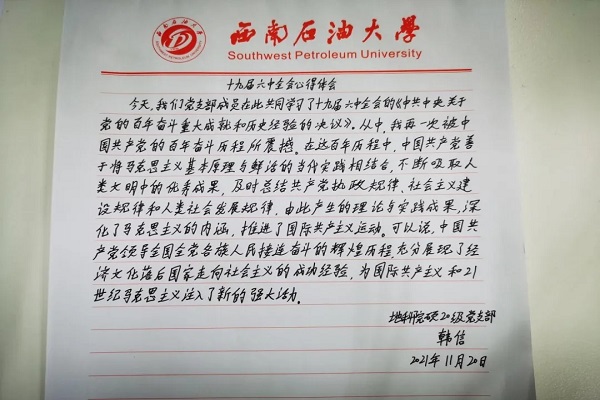 西南石油大学
Southwest Petroleum University
十九届六中全会心得体会
今天,我们党支部成员在此共同学习了十九届六中全会的《中共中央关于
党的百年奋斗重大成就和历史经验的决议》。从中,我再一次被中
国共产党的百年奋斗历程所震撼。在这百年历程中,中国共产党善
于将马克思主义基本原理与鲜活的当代实践相结合,不断吸取人
类文明中的优秀成果,及时总结共产党执政规律、社会主义建
设规律和人类社会发展规律,由此产生的理论与实践成果,深
化了马克思主义的内涵,推进了国际共产主义运动。可以说,中国共
产党领导全国全党各族人民接连奋斗的辉煌历程充分展现了经
济文化落后国家走向社会主义的成功经验,为国际共产主义和21
世纪马克思主义注入了新的强大活力。
地科院硕20级党支部
韩信
2021年11月20日